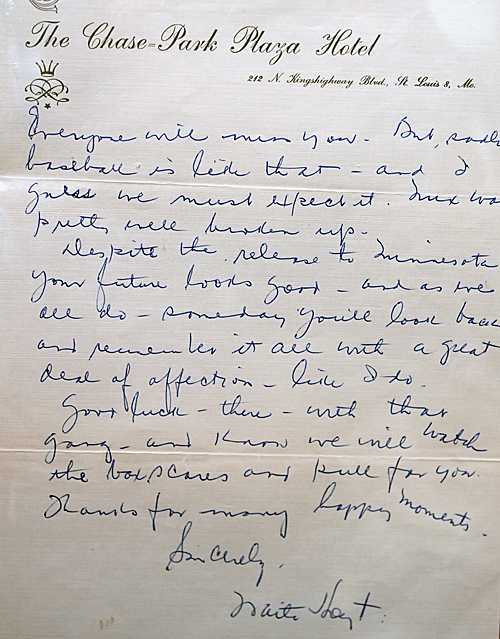 The Chase-Park Plaza Hotel
212 N. Kingshighway Blvd., St. Louis 8, Mo.
Everyone will miss you. But, sadly
baseball is like that - and I
guess we must expect it. was
pretty well broken up.
Despite the release to Minnesota
your future looks good - and as we
all do - someday you'll look back
and remember it all with a great
deal of affection - like I do.
Good luck - there - with that
gang - and know we will watch
the boxscores and pull for you.
Thanks for many happy moments.
Sincerely,
Waite Hoyt.